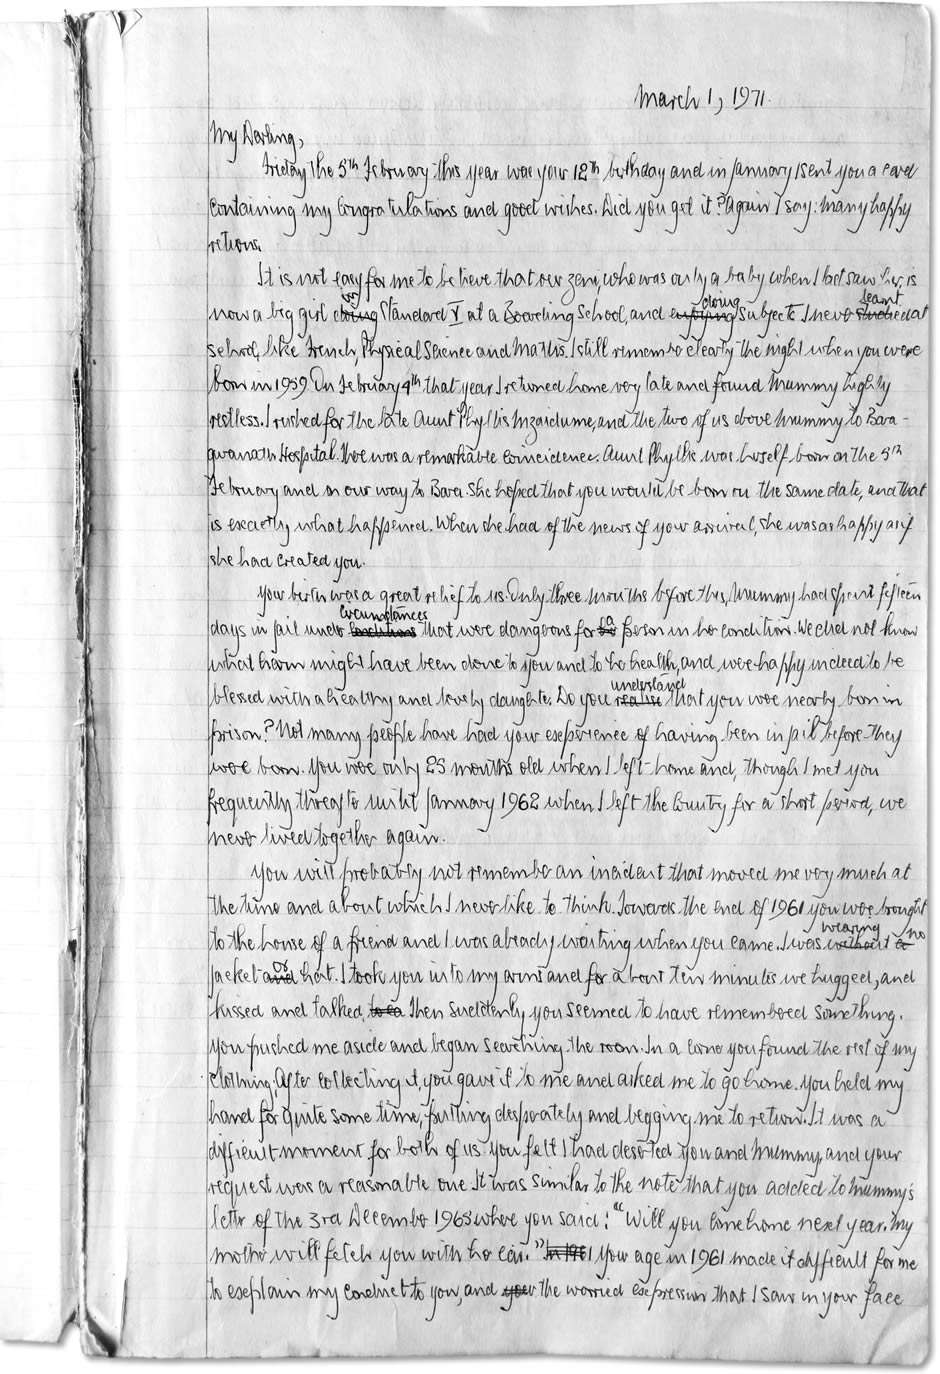 March 1, 1971.
My Darling,
Friday the 5th February this year was your 12th birthday and in January I sent you a card
containing my congratulations and good wishes. Did you get it? Again I say: Many happy
returns.
It is not easy for me to believe that our Zeni, who was only a baby when I last saw her, is
now a big girl doing in Standard V at a Boarding School, and enjoying doing subjects I never studied learnt at
school, like French, Physical Science and Maths. I still remember clearly the night when you were
born in 1959. On February 4th that year I returned home very late and found Mummy highly
restless. I rushed for the late Aunt Phyllis Mzaidume, and the two of us drove Mummy to Bara-
gwanath Hospital. There was a remarkable coincidence. Aunt Phyllis was herself born on the 5th
February and on our way to Bara she hoped that you would be born on the same date, and that
is exactly what happened. When she had of the news of your arrival, she was as happy as if
she had created you.
Your birth was a great relief to us. Only three months before this, Mummy had spent fifteen
days in jail under conditions circumstances that were dangerous for a person in her condition. We did not know
what harm might have been done to you and to her health, and were happy indeed to be
blessed with a healthy and lovely daughter. Do you realise understand that you were nearly born in
prison? Not many people have had your experience of having been in jail before they
were born. You were only 25 months old when I left home and, though I met you
frequently thereafter until January 1962 when I left the country for a short period, we
never lived together again.
You will probably not remember an incident that moved me very much at
the time and about which I never like to think. Towards the end of 1961 you were brought
to the house of a friend and I was already waiting when you came. I was without a wearing no
jacket and or hat. I took you into my arms and for about ten minutes we hugged, and
kissed and talked. Then suddenly you seemed to have remembered something.
You pushed me aside and began searching the room. In a corner you found the rest of my
clothing. After collecting it, you gave it to me and asked me to go home. You held my
hand for quite some time, pulling desperately and begging me to return. It was a
difficult moment for both of us. You felt I had deserted you and Mummy, and your
request was a reasonable one. It was similar to the note that you added to Mummy's
letter of the 3rd December 1965 where you said: "Will you come home next year. My
mother will fetch you with her car." In 1961 Your age in 1961 made it difficult for me
to explain my conduct to you, and your the worried expression that I saw in your face